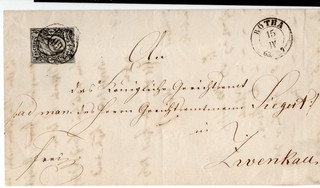 RÖTHA
15
IV
An
das Königliche Gerichtsamt
ad man. des Herrn Gerichtsamtmann Siegert
in
Zwenkau.
frei